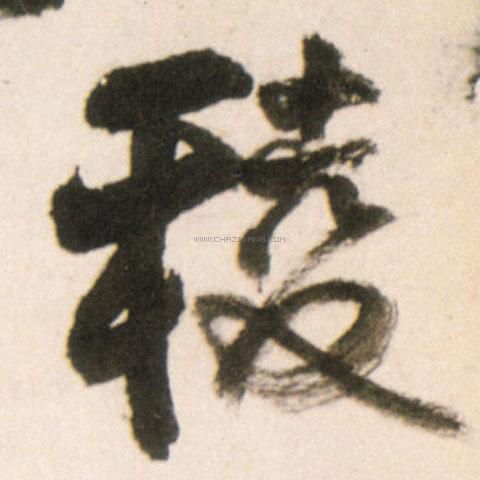 稜
WWW.CHAZIWANG.COM